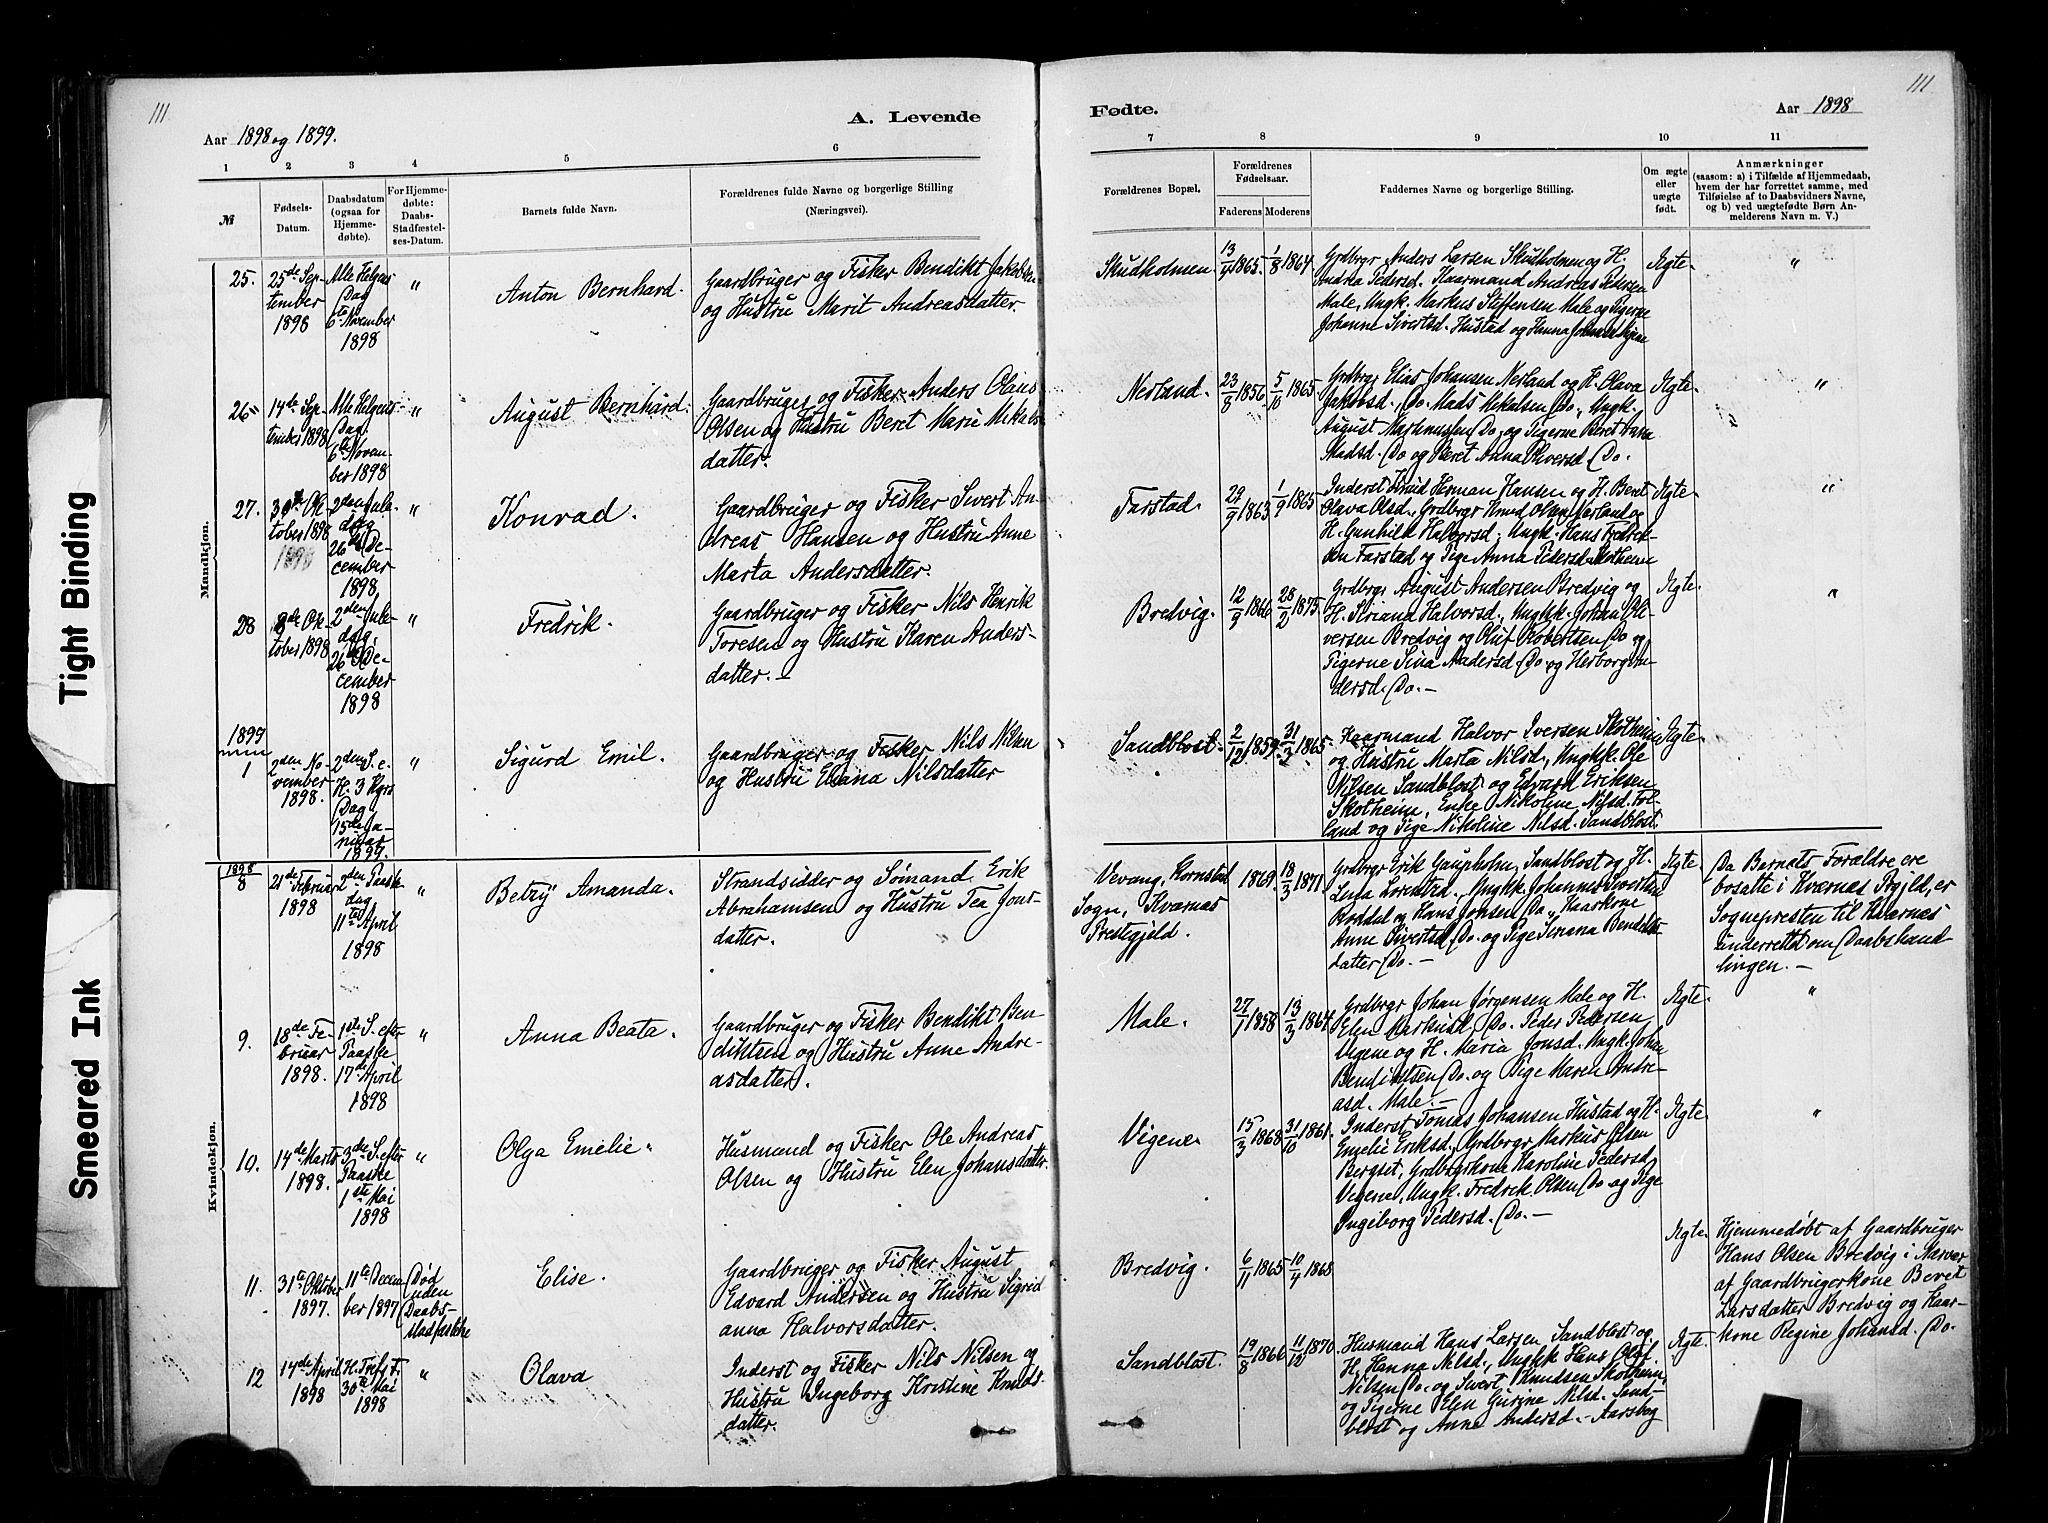 Tight Binding
Smeared Ink
111
A. Levende
Aar 1898 og 1899.
1
2
3
4
5
6
№
Fødsels-
Datum.
Daabsdatum
(ogsaa for
Hjemme-
døbte).
For Hjemme-
døbte:
Daabs-
Stadfæstel-
ses-Datum.
Barnets fulde Navn.
Forældrenes fulde Navne og borgerlige Stilling
(Næringsvei).
Mandkjøn.
25.
25de Sep-
tember
1898
Alle Helgens
Dag
6te November
1898
"
Anton Bernhard.
Gaardbruger og Fisker Bendikt Jakobsen
og Hustru Marit Andreasdatter.
26
14de Sep-
tember 1898
Alle Helgens-
Dag
6te Novem-
ber 1898
"
August Bernhard.
Gaardbruger og Fisker Anders Olaus
Olsen og Hustru Beret Marie Mikals-
datter.
27.
30te Ok-
tober 1898
1898
2den Jule-
dag
26de De-
cember
1898
"
Konrad.
Gaardbruger og Fisker Sivert An-
dreas Hansen og Hustru Anne
Marta Andersdatter.
28
de Ok-
tober 1898
2den Jule-
dag
26de De-
cember
1898
"
Fredrik.
Gaardbruger og Fisker Nils Henrik
Toresen og Hustru Karen Anders-
datter. —
1899
1
2den No-
vember
1898.
2den S. e.
H. 3 Kgrs
Dag
15de Ja-
nuar
1899.
"
Sigurd Emil.
Gaardbruger og Fisker Nils Nilsen
og Hustru Eliana Nilsdatter
Kvindekjøn.
1898
8
21de Februar
1898
2den Paaske-
dag
11te April
1898
"
Betzy Amanda.
Strandsidder og Sømand Erik
Abrahamsen og Hustru Tea Jons-
datter.
9.
18de Fe-
bruar
1898.
1ste S. efter
Paaske
17de April
1898
"
Anna Beata.
Gaardbruger og Fisker Bendikt Ben
diktsen og Hustru Anne Andre-
asdatter.
10.
14de Marts
1898.
3die S. efter
Paaske
1ste Mai
1898
"
Olga Emelie.
Husmand og Fisker Ole Andreas
Olsen og Hustru Elen Johansdatter.
11.
31te Oktober
1897.
11te Decem
ber 1897
Død
uden
Daabs-
stadfæstelse
Elise.
Gaardbruger og Fisker August
Edvard Andersen og Hustru Sigrid
anna Halvorsdatter.
12
14de April
1898
H. Tref. F.
30te Mai
1898
"
Olava
Inderst og Fisker Nils Nilsen og
Hustru Ingeborg Kristine Knuds-
datter.
111
Fødte.
Aar 1898
7
8
9
10
11
Forældrenes Bopæl.
Forældrenes
Fødselsaar.
Faderens
Moderens
Faddernes Navne og borgerlige Stilling.
Om ægte
eller
uægte
født.
Anmærkninger
(saasom: a) i Tilfælde af Hjemmedaab,
hvem der har forrettet samme, med
Tilføielse af to Daabsvidners Navne,
og b) ved uægtefødte Børn An-
melderens Navn m. V.)
Skudholmen
13/4 1865.
1/8 1864
Grdbrgr Anders Larsen Skudholmen og H.
Andrea Pedersd. Kaarmand Andreas Pedersen
Male, Ungk. Markus Steffensen Male og Pigerne
Johanne Sivertsd. Hustad og Hanna
Ægte
"
Nerland.
23/8 1856.
5/10 1865.
Grdbrgr Elias Johansen Nerland og H. Olava
Jakobsd., Do. Mads Mekalsen Do., Ungk.
August Martinussen Do. og Pigerne Beret Anna
Madsd. Do og Beret Anna Olversd. Do.
Ægte.
"
Farstad.
29/9 1863
1/9 1865.
Inderst Herman Hansen og H. Beret
Olava Olsd., Grdbrgr Knud Olsen Nerland og
H. Gunhild Halvorsd., Ungk. Hans Fredrik-
sen Farstad og Pige Anna Pedersd. Skotheim
Ægte.
"
Bredvig.
12/9 1866
28/2 1875.
Grdbrgr August Andersen Bredvig og
H. Sirianna Halvorsd., Ungkk. Johan Si-
versen Bredvig og Oluf Robertsen Do og
Pigerne Sina Andersd. Do og Herborg An-
dersd. Do. —
Ægte.
"
Sandblost.
2/12 1859.
31/3 1865.
Kaarmand Halvor Iversen Skotheim
og Hustru Marta Nilsd., Ungkk. Ole
Nilsen Sandblost og Edvard Eriksen
Skotheim, Enke Nikoline Nilsd. Fol-
land og Pige Nikoline Nilsd. Sandblost.
Ægte.
Vevang, Kornstad
Sogn, Kværnes
Prestegjeld.
1869.
18/3 1871
Grdbrgr Erik Gaupholm, Sandblost og H.
Lena Lorentsd., Ungkk. Johannes Sivertsen
Roddal og Hans Johsen Do., Kaarkone
Anne Sivertsd. Do. og Pige Simana Bendikts-
datter Do. —
Ægte.
Da Barnets Forældre ere
bosatte i Kværnes Prgjld, er
Sognepresten til Kværnes
underrettet om Daabshand
lingen. —
Male.
27/1 1858
13/3 1864
Grdbrgr Johan Jørgensen Male og H.
Elen Markusd., Do. Peder Pedersen
Vigene og H. Maria Jonsd. Ungk. Johan
Bendiktsen Do. og Pige Maren Andre-
asd. Male. —
Ægte.
"
Vigene
15/3 1868
31/10 1861.
Inderst Tomas Johansen Hustad og H.
Emelie Eriksd., Grdbrgr Markus Olsen
Bergset, Grdbrgrkone Karoline Pedersd.
Vigene, Ungk. Fredrik Olsen Do og Pige
Ingeborg Pedersd. Do. —
Ægte.
"
Bredvig.
6/11 1865
10/4 1868
Ægte.
Hjemmedøbt af Gaardbruger
Hans Olsen Bredvig i Nærvær
af Gaardbrugerkone Beret
Larsdatter Bredvig og Kaar-
kone Regine Johansd. Do.
Sandblost.
19/8 1866
11/12 1870
Husmand Hans Larsen Sandblost og
H. Hanna Nilsd., Ungkk Hans Olaf
Nilsen Do. og Sivert Knudsen Skotheim,
og Pigerne Elen Gurine Nilsd. Sand-
blost og Anne Andersd. Aarsbog
Ægte.